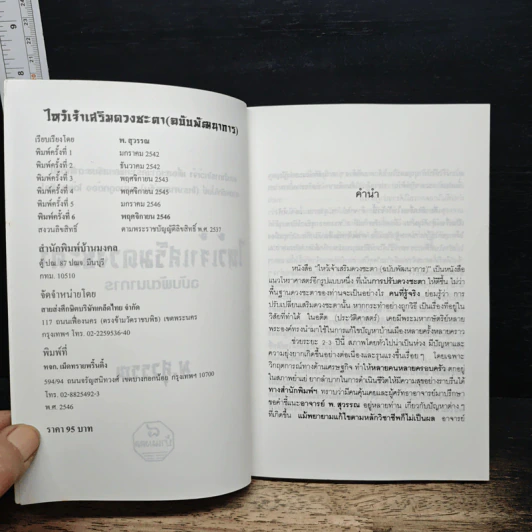 ไหว้เจ้าเสริมดวงชะตา(ฉบับพัฒนาการ)
เรียบเรียงโดย พ. สุวรรณ
พิมพ์ครั้งที่ 1 มกราคม 2542
พิมพ์ครั้งที่ 2 ธันวาคม 2542
พิมพ์ครั้งที่ 3 พฤศจิกายน 2543
พิมพ์ครั้งที่ 4 พฤศจิกายน 2545
พิมพ์ครั้งที่ 5 มกราคม 2546
พิมพ์ครั้งที่ 6 พฤศจิกายน 2546
สงวนลิขสิทธิ์ ตามพระราชบัญญัติลิขสิทธิ์ พ.ศ. 2537
สำนักพิมพ์บ้านมงคล
ตู้ ปณ. 87 ปณจ. มีนบุรี
กทม. 10510
จัดจำหน่ายโดย
สายส่งศึกษิตบริษัทเคล็ดไทย จำกัด
117 ถนนเฟื่องนคร (ตรงข้ามวัดราชบพิธ) เขตพระนคร
กรุงเทพฯ โทร. 02-2259536-40
พิมพ์ที่
หจก. เม็ดทรายพริ้นติ้ง
594/94 ถนนจรัญสนิทวงศ์ เขตบางกอกน้อย กรุงเทพฯ 10700
โทร. 02-8825492-3
พ.ศ. 2546
ราคา 95 บาท
คำนำ
หนังสือ "ไหว้เจ้าเสริมดวงชะตา (ฉบับพัฒนาการ)" เป็นหนังสือ
แนวโหราศาสตร์อีกรูปแบบหนึ่ง ที่เน้นการปรับดวงชะตา ให้ดีขึ้น ไม่ว่า
พื้นฐานดวงชะตาของท่านจะเป็นอย่างไร คนที่รู้จริง ย่อมรู้ว่า การ
ปรับเปลี่ยนเสริมดวงชะตานั้น หากกระทำอย่างถูกวิธี เป็นเรื่องที่อยู่ใน
วิสัยที่ทำได้ ในอดีต (ประวัติศาสตร์) เคยมีพระมหากษัตริย์หลาย
พระองค์ทรงนำมาใช้ในการแก้ไขปัญหาบ้านเมืองหลายครั้งหลายคราว
ช่วงระยะ 2-3 ปีนี้ สภาพโดยทั่วไปเป็นห่วง มีปัญหาและ
ความยุ่งยากเกิดขึ้นอย่างต่อเนื่องและรุนแรงขึ้นเรื่อยๆ โดยเฉพาะ
วิกฤตการณ์ทางด้านเศรษฐกิจ ทำให้หลายคนหลายครอบครัว ตกอยู่
ในสภาพย่ำแย่ ยากลำบากในการดำเนินชีวิตให้มีความสุขอย่างราบรื่นได้
ทางสำนักพิมพ์ฯ ทราบว่ามีคนคุ้นเคยและผู้ศรัทธาอาจารย์มาปรึกษา
ขอคำชี้แนะอาจารย์ พ. สุวรรณ อยู่หลายท่าน เกี่ยวกับปัญหาต่าง ๆ
ที่เกิดขึ้น แม้พยายามแก้ไขตามหลักวิชาชีพก็ไม่เป็นผล อาจารย์